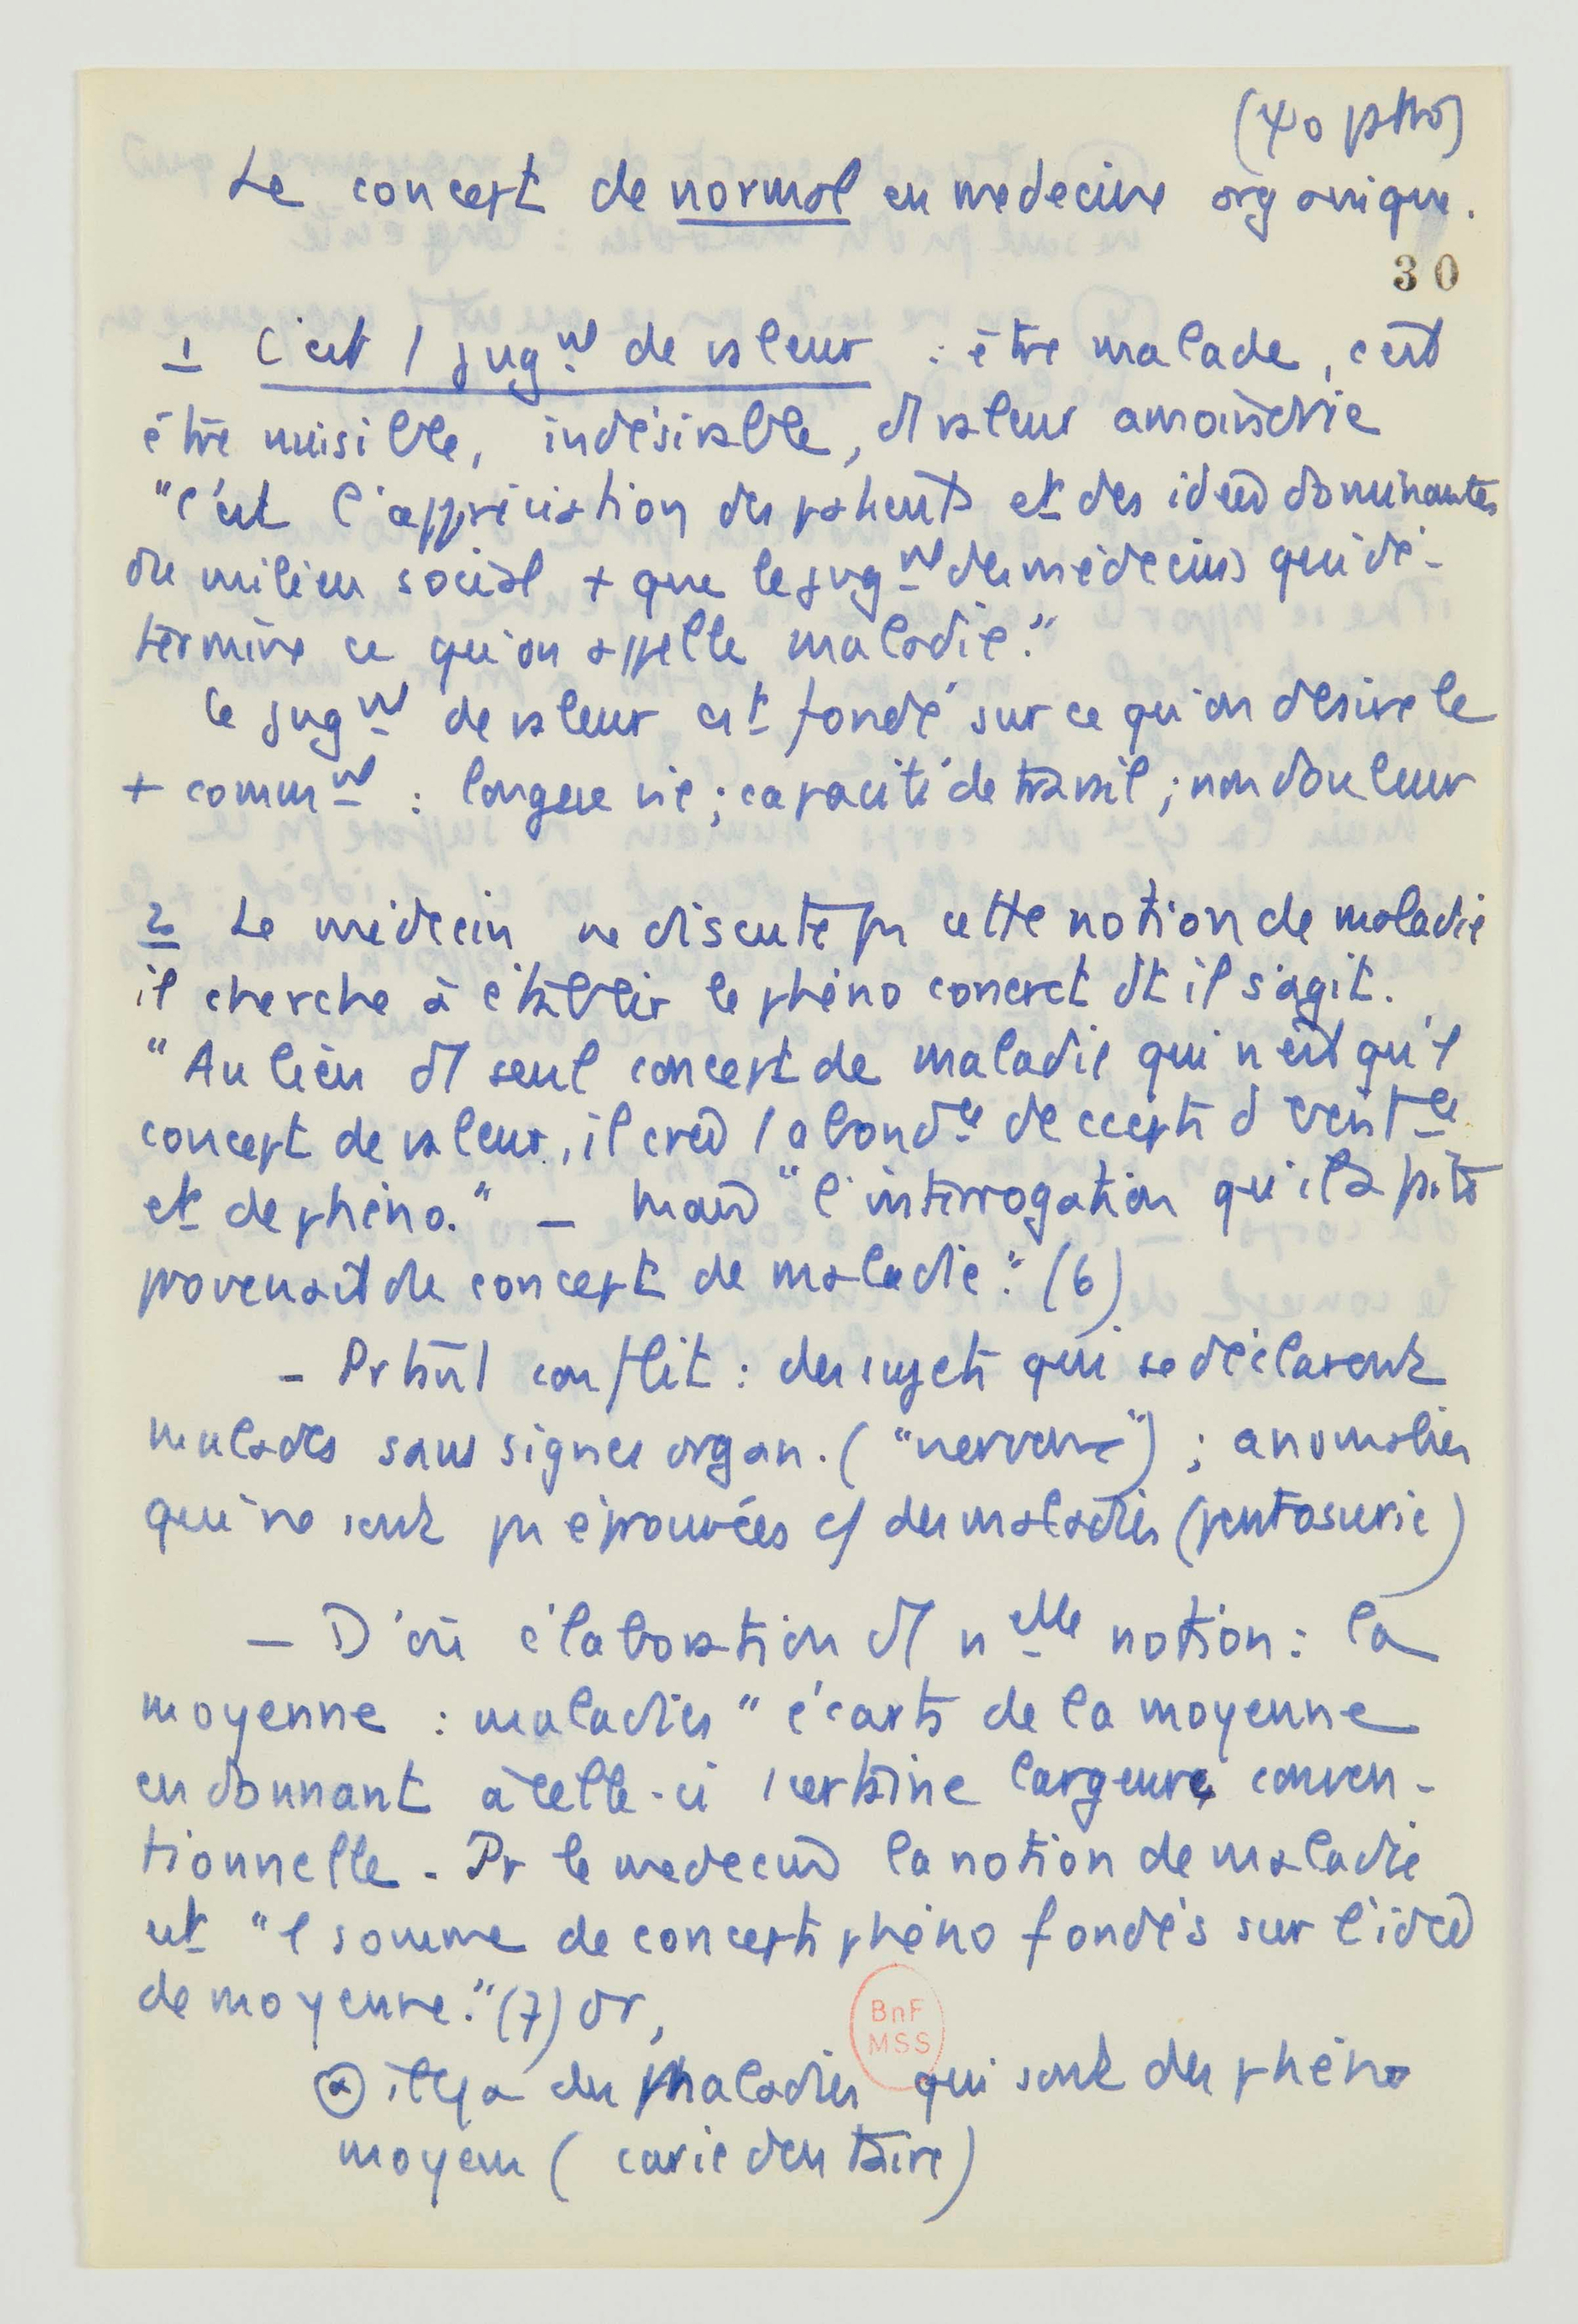 (ψo patho)
Le concept de normal en médecine organique.
30
1 C'est 1 jugnt de valeur : être malade, c'est
être nuisible, indésirable, d1 valeur amoindrie
"C'est l'appréciation des patients et des idées dominantes
du milieu social + que le jugnt des médecins qui dé-
termine ce qu'on appelle maladie."
Ce jugnt de valeur est fondé sur ce qu'on désire le
+ commnt : longue vie ; capacité de travail ; non douleur
2 Le médecin ne discute pas cette notion de maladie
il cherche à établir le phéno concret dt il s'agit.
"Au lieu d1 seul concept de maladie qui n'est qu'1
concept de valeur, il crée 1 abondce de ccepts d'
et de phéno." – Mais "l'interrogation qu'il a
provenait du concept de maladie." (6)
– Prtant conflit : des sujets qui se déclarent
malades sans signes organ. ("nerveux") ; anomalies
qui ne sont pas éprouvées c/ des maladies (pentosurie)
– D'où élaboration d1 nelle notion : la
moyenne : maladies "écarts de la moyenne
en donnant à celle-ci 1 certaine largeur conven-
tionnelle - Pr le médecin la notion de maladie
est "1 somme de concepts phéno fondés sur l'idée
de moyenne." (7) Or,
ⓐ il y a des maladies qui sont des phéno
BnF
MSS
moyens (carie dentaire)